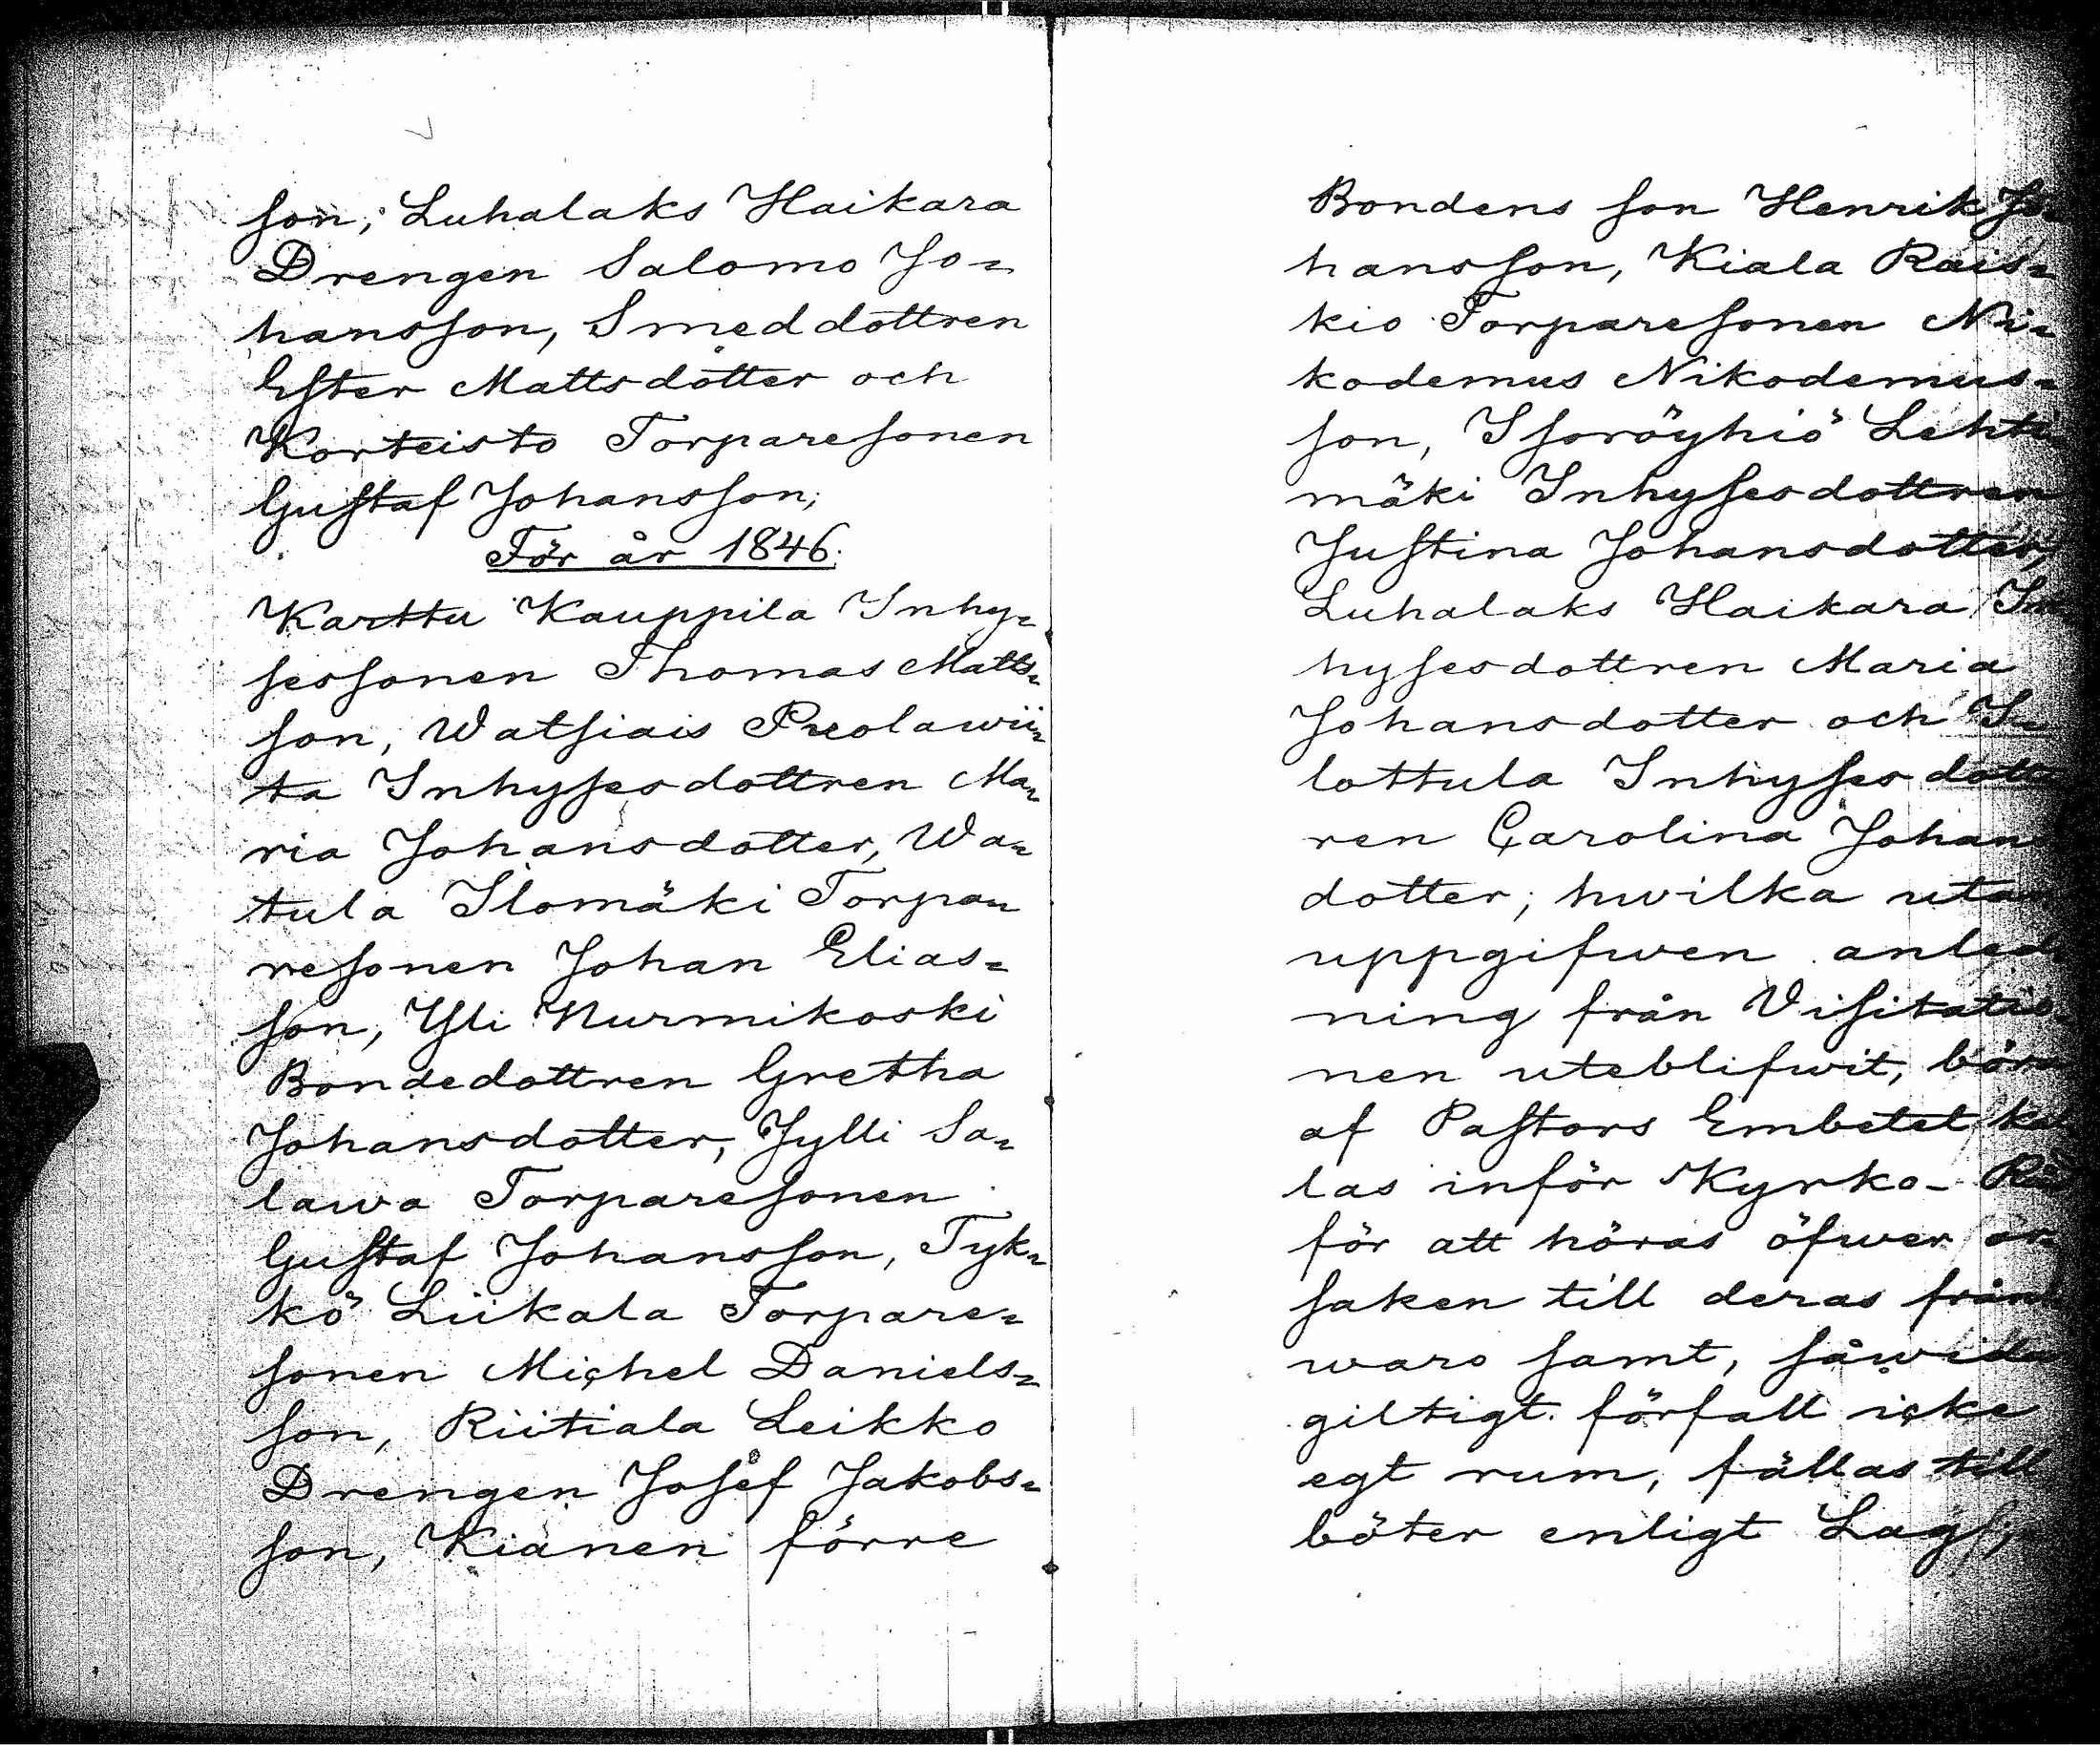 son; Luhalaks Haikara
Drengen Salomo Jo=
hansson, Smeddottren
Ester Mattsdotter och
Korteisto Torparesonen
Gustaf Johansson;
För år 1846.
Karttu Kauppila Inhy=
sessonen Thomas Matts=
son, Watsiais Preolawii=
ta Inhysesdottren Ma=
ria Johansdotter, Wa=
tula Ilomäki Torpa=
resonen Johan Elias=
son, Yli Nurmikoski
Bondedottren Gretha
Johansdotter, Jylli Sa=
lawa Torparesonen
Gustaf Johansson, Tyk=
kö Liikala Torpare=
sonen Michel Daniels=
son, Riitiala Leikko
Drengen Josef Jakobs=
son, Kianen förre
Bondens son Henrik Jo=
hansson, Kiala Rais=
kio Torparesonen Ni=
kodemus Nikodemus=
son, Isoröyhiö Lehti
mäki Inhysesdottren
Justina Johansdotter,
Luhalaks Haikara In
hysesdottren Maria
Johansdotter och I=
lottula Inhysesdott
ren Carolina Johans
dotter; hwilka utan
uppgifwen anled
ning från Visitatio=
nen uteblifwit, böra
af Pastors Embetet kal
las inför Kyrko-Rå
för att höras öfwer or=
saken till deras från
waro samt, såwida
giltigt förfall icke
egt rum, fällas till
böter enligt Lag;